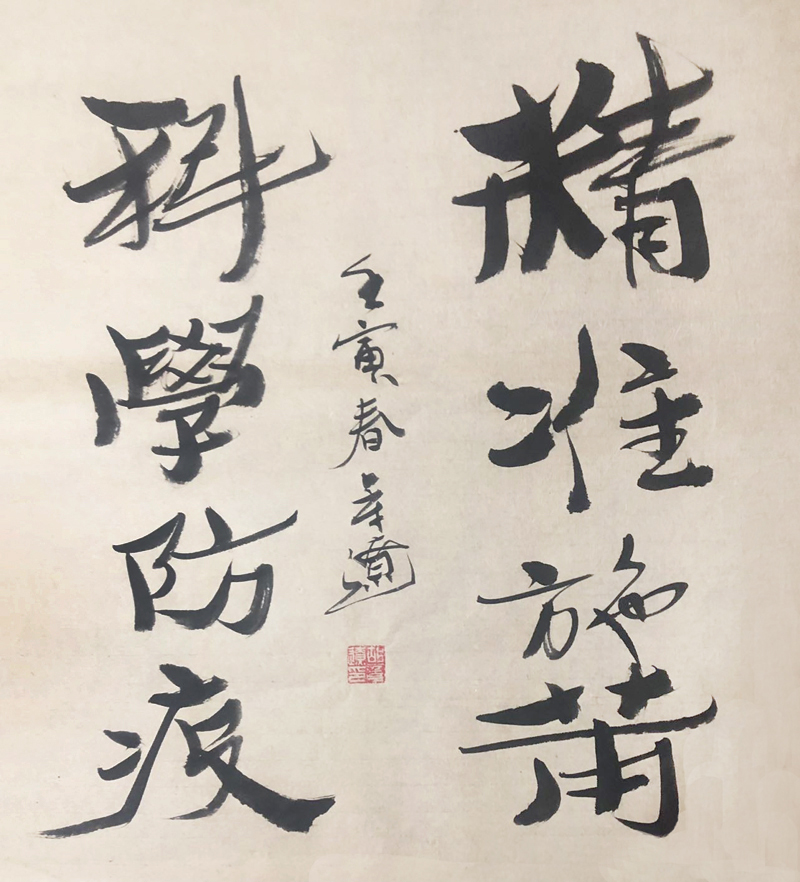 精准施策
壬寅春
科學防疫